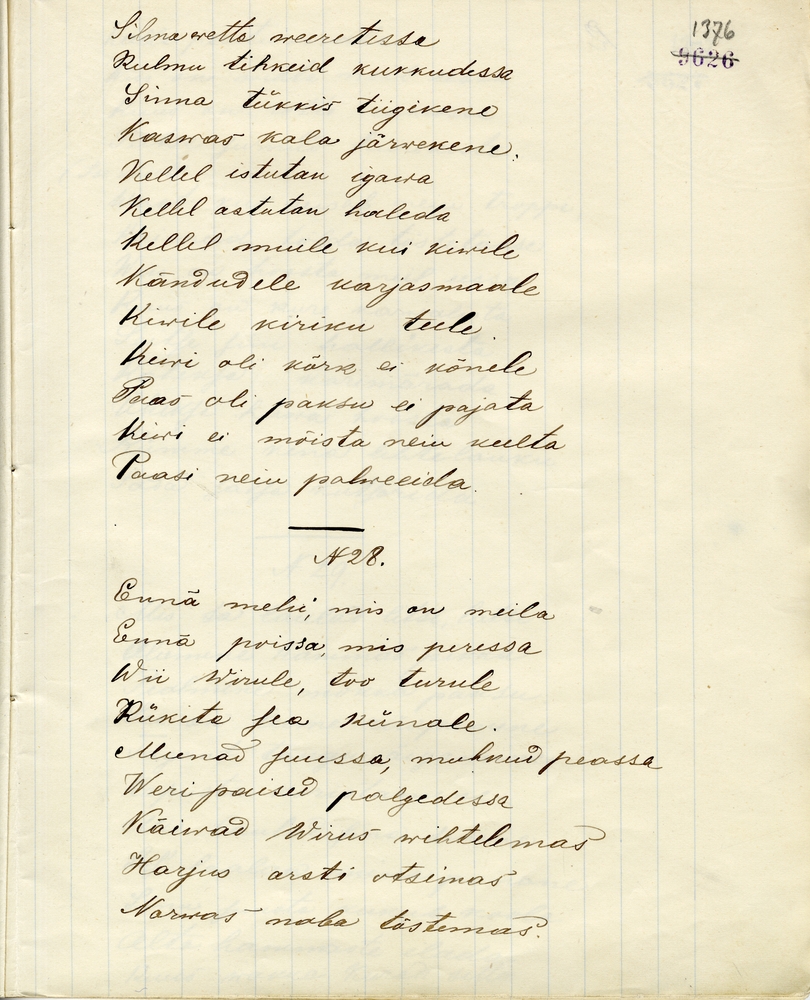 1376
9626
Silmawetta weeretessa
Kulmu tihkeid kukkudessa
Sinna tükkis tiigikene
Kaswas kala järwekene.
Kellel istutan igawa
Kellel astutan haleda
Kellel muile kui kiwile
Kändudele karjasmaale
Kiwile kiriku teele.
Kiwi oli kõrk ei kõnele
Paas oli paksu ei pajata
Kiwi ei mõista neiu keelta
Paasi neiu palweeida.
N 28.
Ennä mehi, mis on meila
Ennä poissa, mis peressa
Wii Wirule, too turule
Rükita sea künale.
Munad suussa, muhkud peassa
Weripaised palgedessa
Käiwad Wirus wihtelemas
Harjus arsti otsimas
Narwas naba tõstemas.